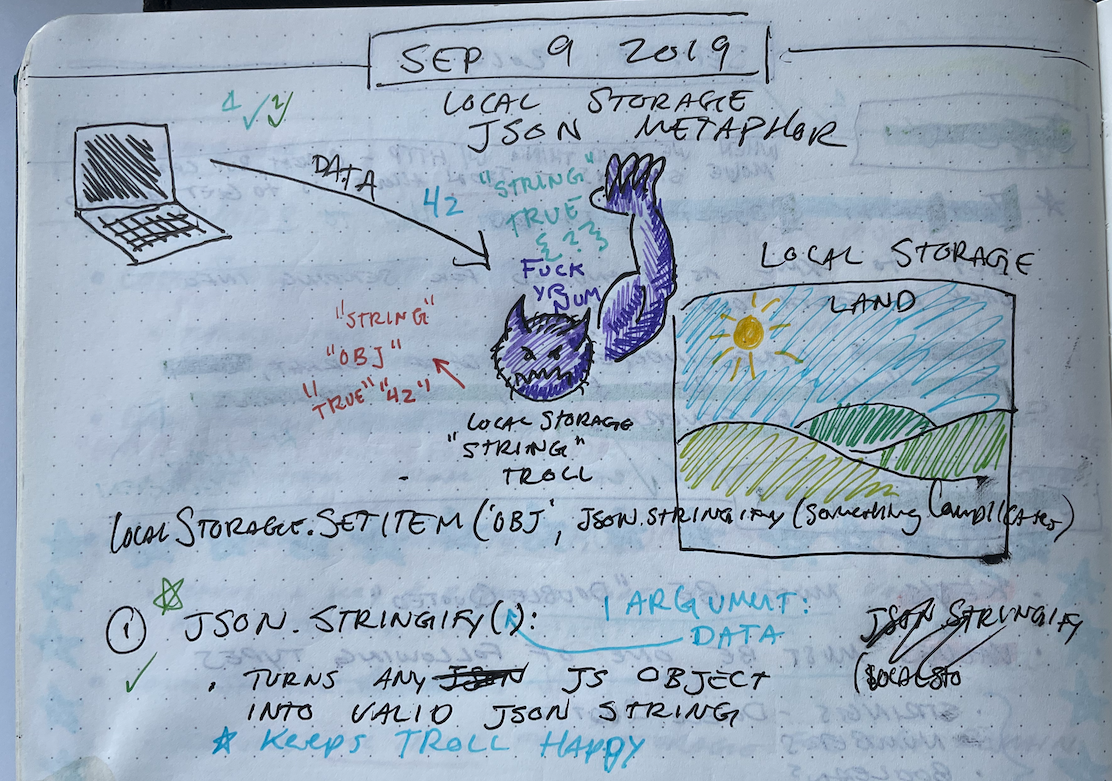 SEP 9 2019
LOCAL STORAGE
JSON METAPHOR
1 ✓ 2 ✓
DATA
42
"STRING"
TRUE
{ ??}
FUCK
YR NUM
"STRING"
"OBJ"
"TRUE" "42"
LOCAL STORAGE
"STRING"
TROLL
LOCAL STORAGE
LAND
LOCALSTORAGE.SETITEM('OBJ', JSON.STRINGIFY(Something Complicated)
① JSON.STRINGIFY():
1 ARGUMUT:
DATA
JSON STRINGIFY
(LOCALSTO
✓ . TURNS ANY JSON JS OBJECT
INTO VALID JSON STRING
☆ KEEPS TROLL HAPPY